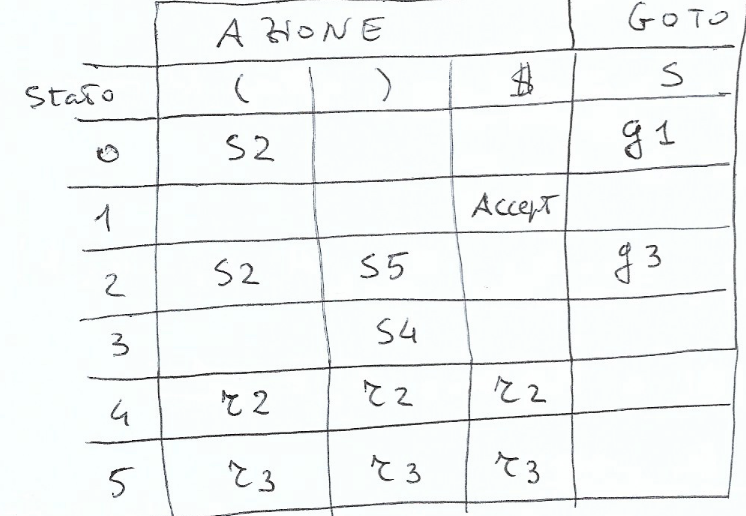 AZIONE GOTO
Stato ( ) $ S
0 S2 g1
1 Accept
2 S2 S5 g3
3 S4
4 r2 r2 r2
5 r3 r3 r3